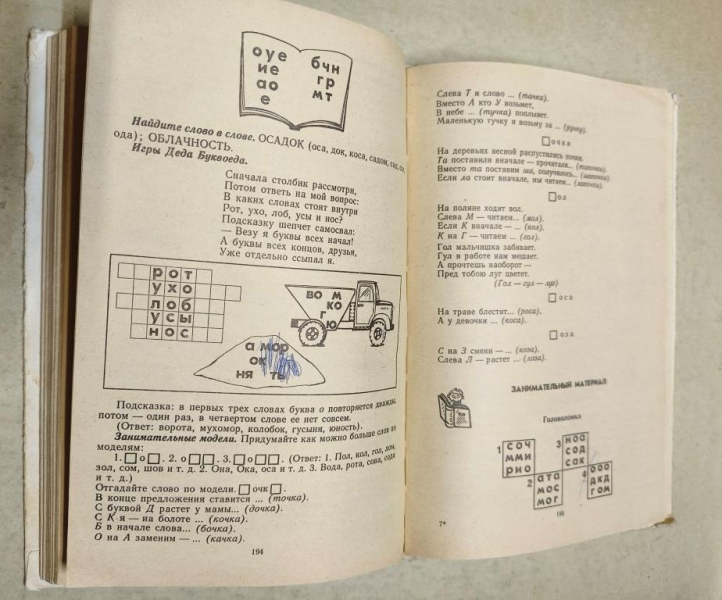 оуе бчн
ие гр
ао мт
е
Найдите слово в слове. ОСАДОК (оса, док, коса, садок, сад,
ода); ОБЛАЧНОСТЬ.
Игры Деда Буквоеда.
Сначала столбик рассмотри,
Потом ответь на мой вопрос:
В каких словах стоят внутри
Рот, ухо, лоб, усы и нос?
Подсказку шепчет самосвал:
— Везу я буквы всех начал!
А буквы всех концов, друзья,
Уже отдельно ссыпал я.
рот
ухо
лоб
усы
нос
во м
ко
г
ю
а мор
ок
ня ть
Подсказка: в первых трех словах буква о повторяется дважды,
потом — один раз, в четвертом слове ее нет совсем.
(Ответ: ворота, мухомор, колобок, гусыня, юность).
Занимательные модели. Придумайте как можно больше слов по
моделям:
1. □о□. 2. о□□. 3. □о□□. (Ответ: 1. Пол, кол, гол, лом,
зол, сом, шов и т. д. 2. Она, Ока, оса и т. д. 3. Вода, рота, сова, сода
и т. д.)
Отгадайте слово по модели. □очк□.
В конце предложения ставится ... (точка).
С буквой Д растет у мамы... (дочка).
С К я — на болоте ... (кочка).
Б в начале слова... (бочка).
О на А заменим — ... (качка).
194
Слева Т и слово ... (тачка).
Вместо А кто У возьмет,
В небе ... (тучка) поплывет.
Маленькую тучку я возьму за ... (ручку).
□очки
На деревьях весной распустились почки.
Та поставили вначале — прочитали... (тапочки).
Вместо та поставим ша, получилось... (шапочки).
Если ла стоит вначале, мы читаем... (лапочки).
□ол
На поляне ходит вол.
Слева М — читаем ... (мол).
Если К вначале — ... (кол).
К на Г — читаем ... (гол).
Гол мальчишка забивает.
Гул в работе нам мешает.
А прочтешь наоборот —
Пред тобою луг цветет.
(Гол — гул — луг)
□оса
На траве блестит... (роса),
А у девочки ... (коса).
□оза
С на З смени — ... (коза).
Слева Л — растет ... (лоза).
ЗАНИМАТЕЛЬНЫЙ МАТЕРИАЛ
Головоломка
1 соч
мми
рио
2 ата
мос
мог
3 ноа
сод
сак
4 ооо
дкд
гом
7*
195